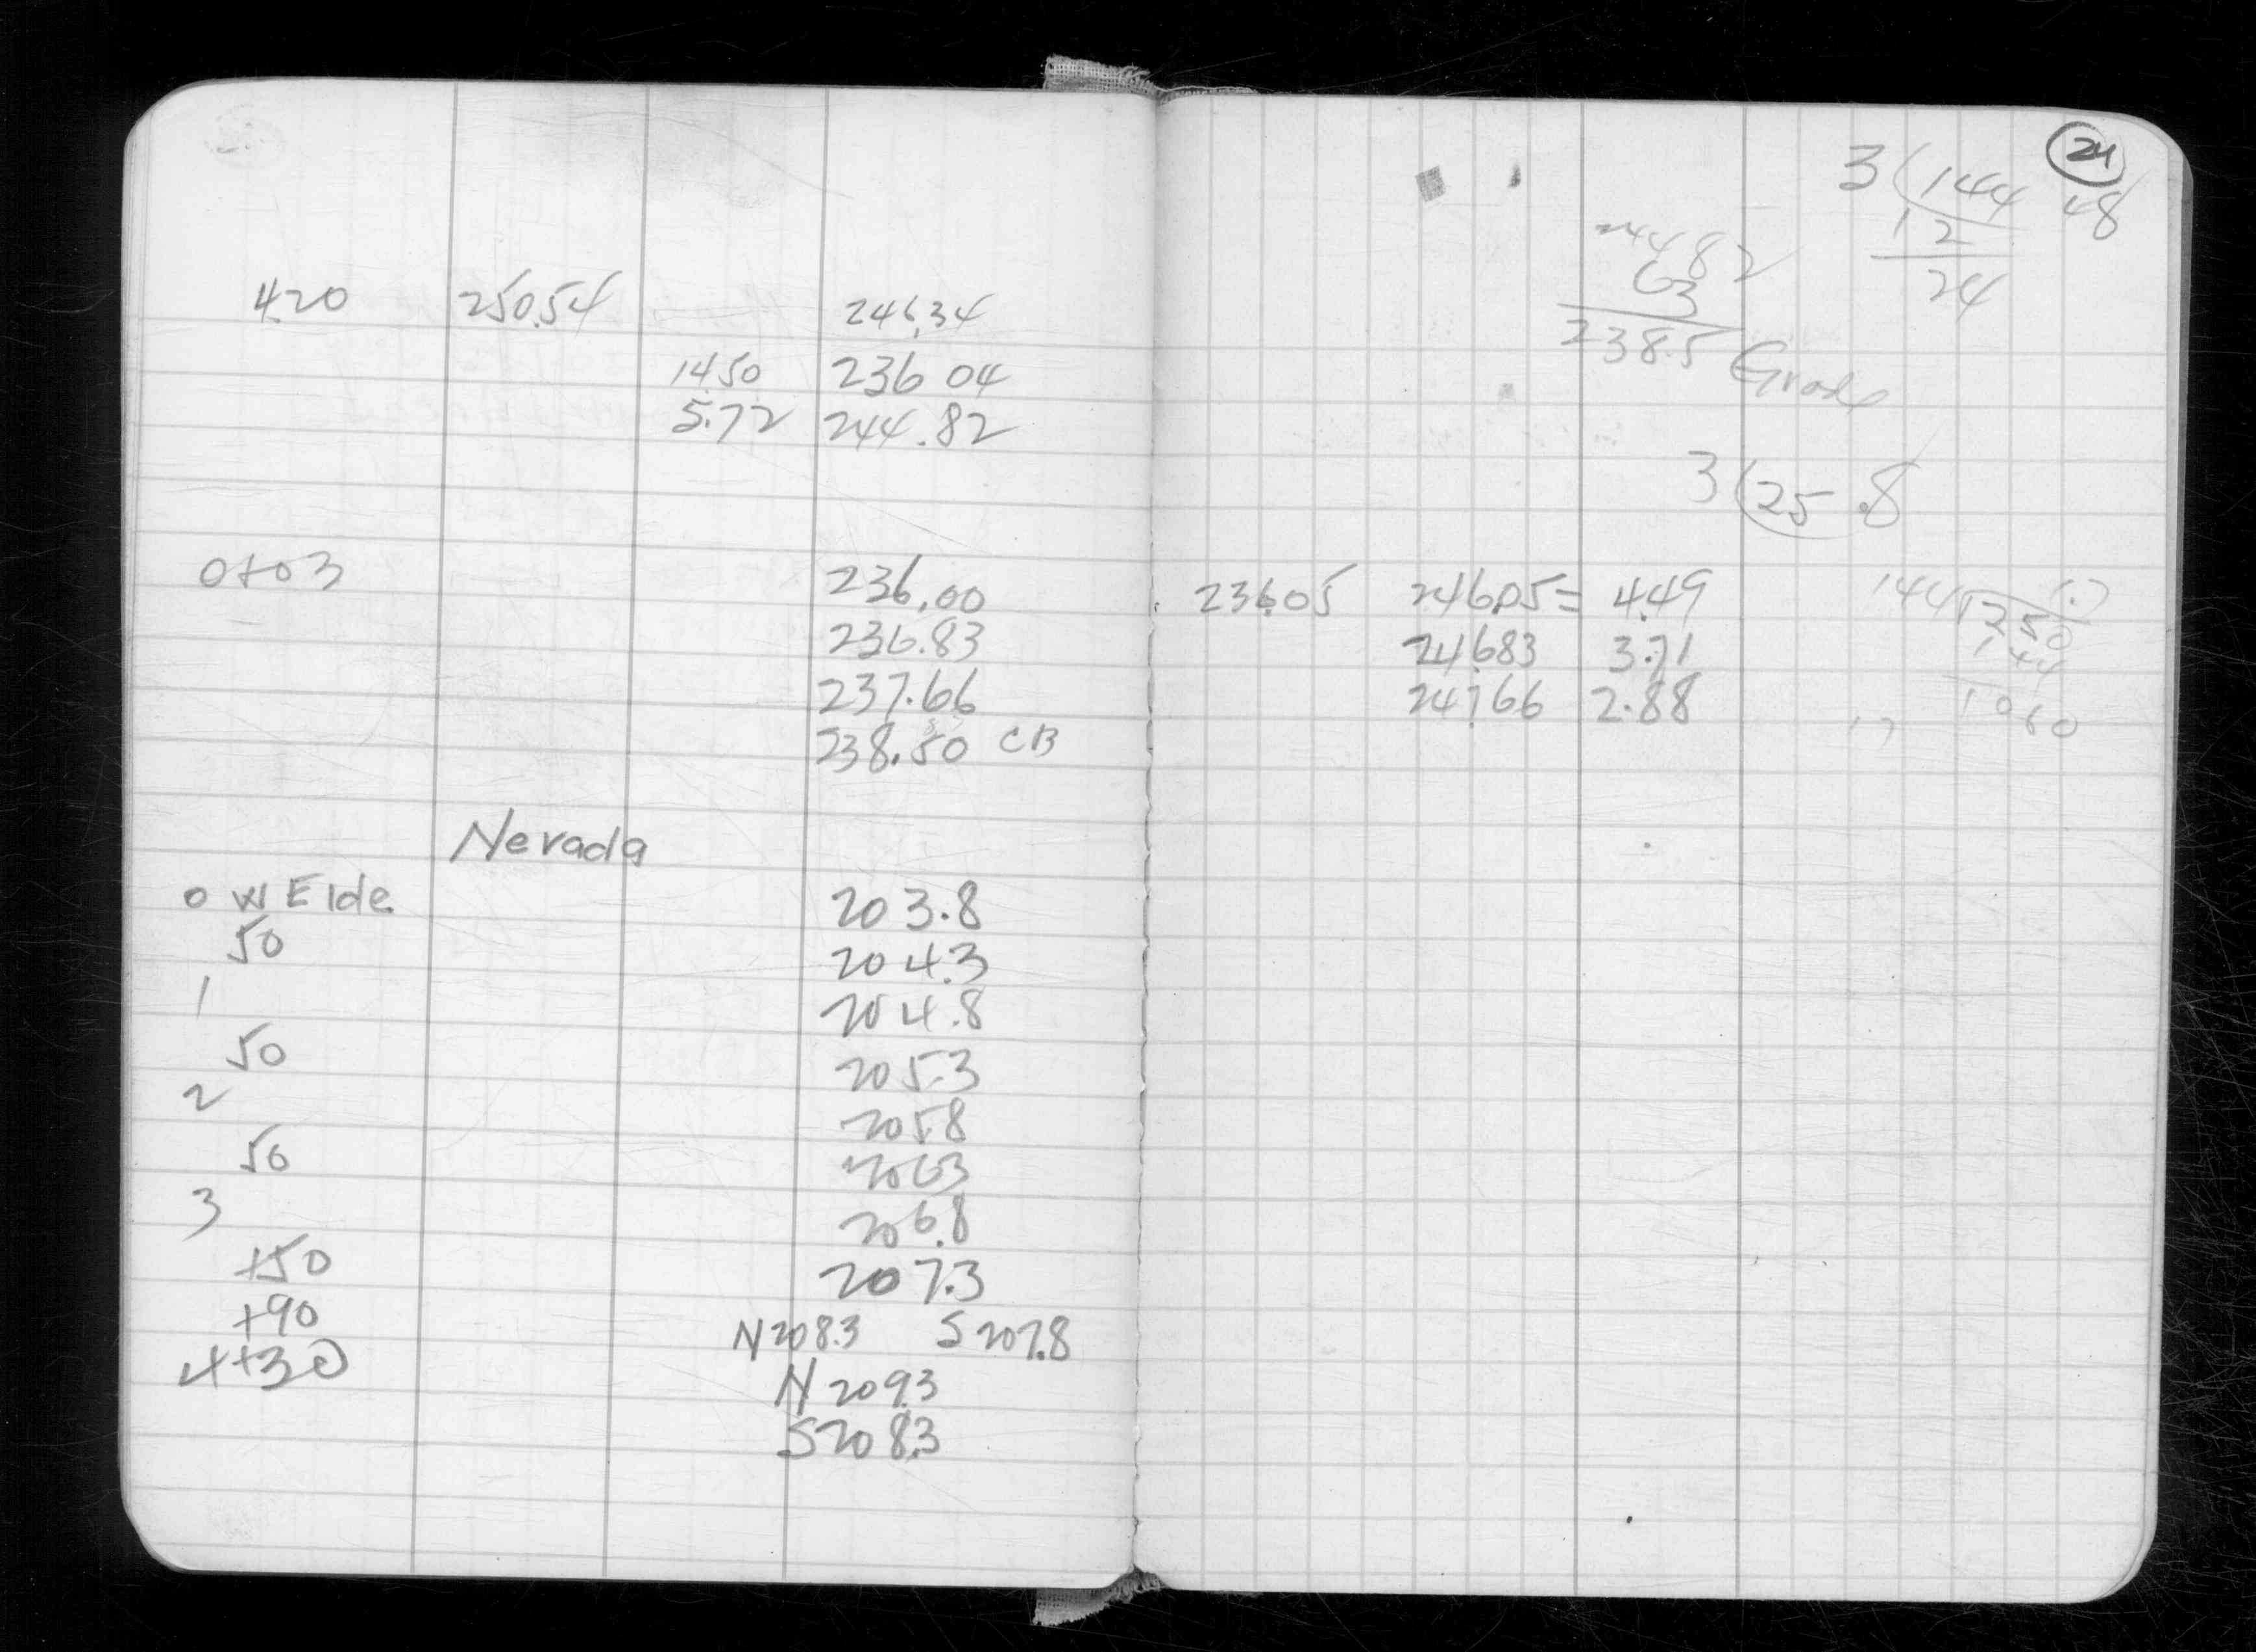 4.20 250.54 246.34
14.50 236.04
5.72 244.82
0+03 236.00
236.83
237.66
238.50 CB
Nevada
0 W Elde 203.8
50 204.3
1 204.8
50 205.3
2 205.8
50 206.3
3 206.8
+50 207.3
+90 N 208.3 S 207.8
4+30 N 209.3
S 208.3
24
3 144 48
12
24
244 82
6 3
238.5 Grade
3 25.8
236.05 246.05 = 4.49
246.83 3.71
247.66 2.88
144 250
144
1060